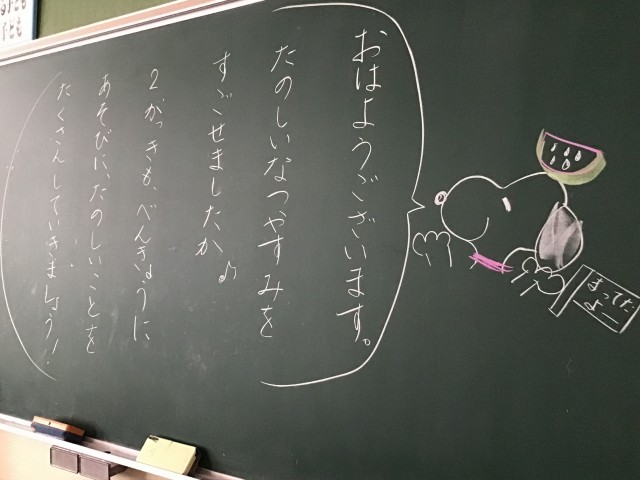 おはようございます。
たのしいなつやすみを
すごせましたか♪
2がっきも、べんきょうに
あそびに、たのしいことを
たくさんしていきましょう！
まってた
よー